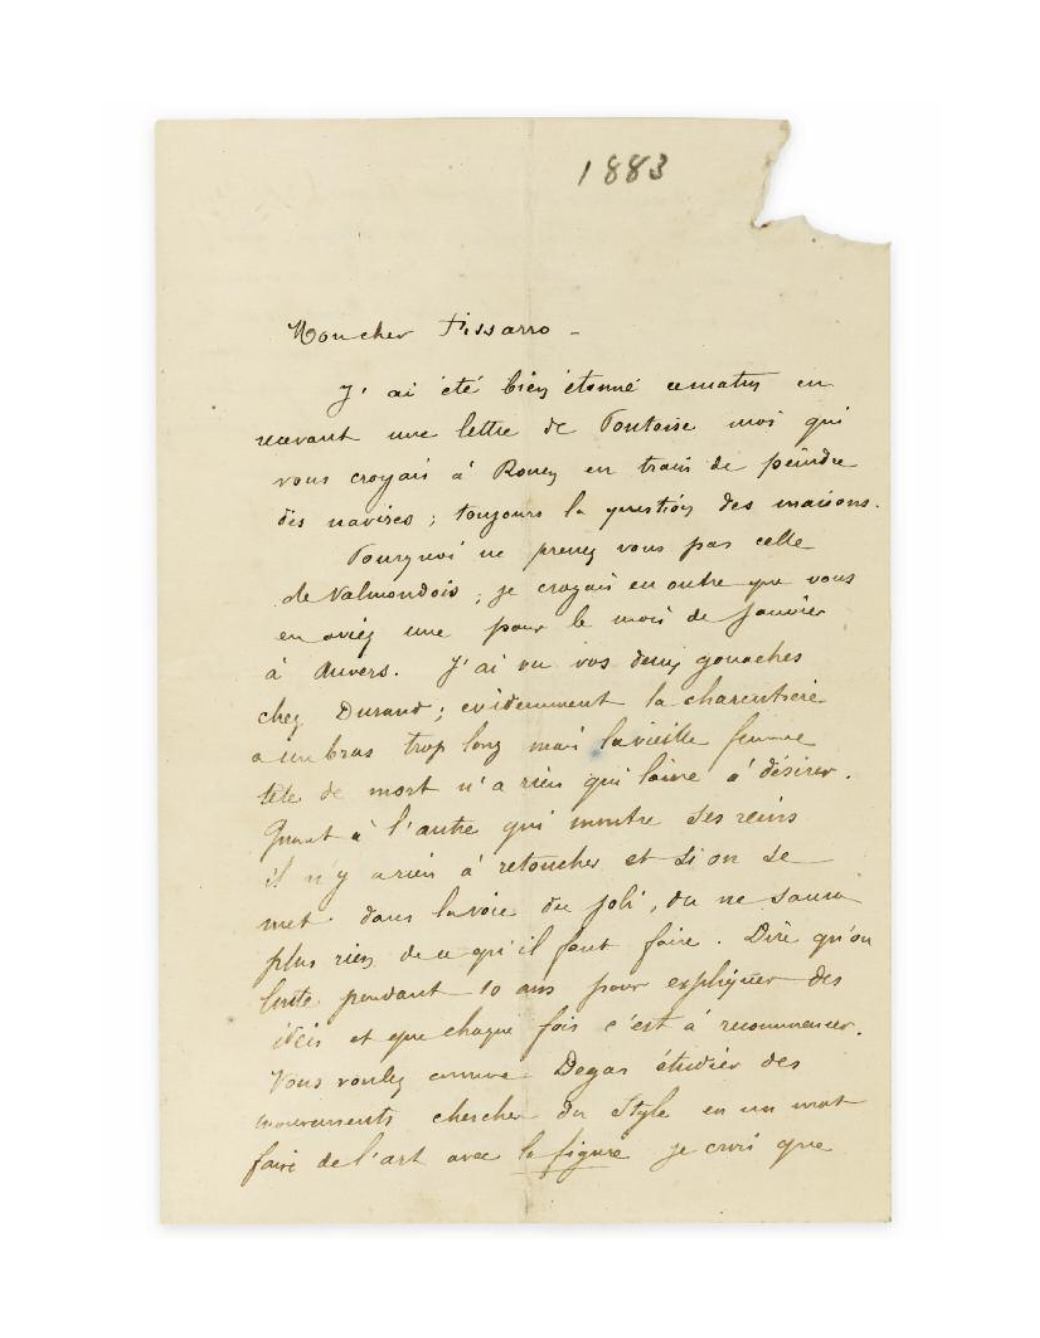 1883
Mon cher Pissarro -
J'ai été bien étonné ce matin en
recevant une lettre de Pontoise moi qui
vous croyais à Rouen en train de peindre
des navires ; toujours la question des maisons.
Pourquoi ne prenez vous pas celle
de Valmondois ; je croyais en outre que vous
en aviez une pour le mois de Janvier
à Auvers. J'ai vu vos deux gouaches
chez Durand ; evidemment la charcutière
a un bras trop long mais la vieille femme
tête de mort n'a rien qui laisse à désirer.
Quant à l'autre qui montre ses reins
il n'y a rien à retoucher et si on se
met dans la voie du joli, on ne saura
plus rien de ce qu'il faut faire. Dire qu'on
lutte pendant 10 ans pour expliquer des
idées et que chaque fois c'est à recommencer.
Vous voulez comme Degas étudier des
mouvements chercher du Style en un mot
faire de l'art avec la figure je crois que